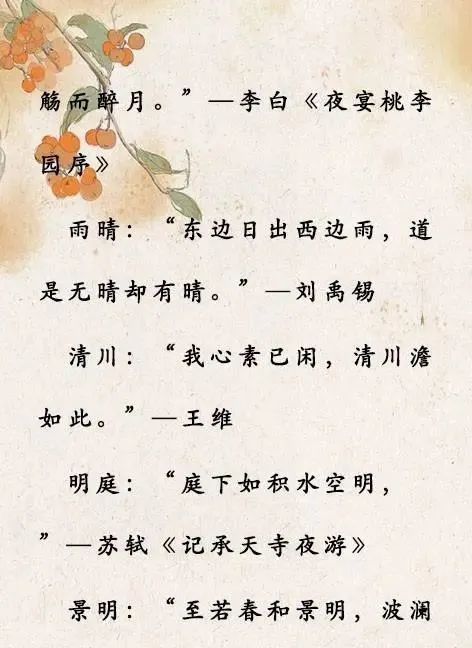 觞而醉月。”—李白《夜宴桃李
园序》
雨晴：“东边日出西边雨，道
是无晴却有晴。”—刘禹锡
清川：“我心素已闲，清川澹
如此。”—王维
明庭：“庭下如积水空明，
”—苏轼《记承天寺夜游》
景明：“至若春和景明，波澜